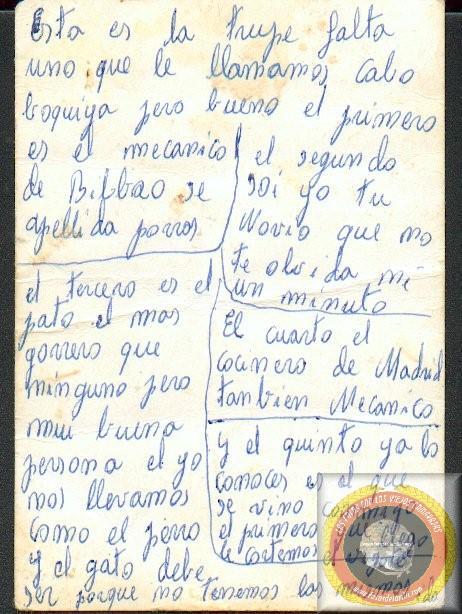 Esta es la trupe falta
uno que le llamamos cabo
boquiya pero bueno el primero
es el mecanico
de Bilbao se
apellida porros
el segundo
soi yo tu
Novio que no
te olvida ni
un minuto
el tercero es el
pato el mas
gorrero que
ninguno pero
mui buena
persona el yo
nos llevamos
como el perro
y el gato debe
ser porque no tenemos los mismos
El cuarto el
cocinero de Madrid
tanbien Mecanico
y el quinto ya lo
conoces es el que
se vino
el primero
le cortemos el